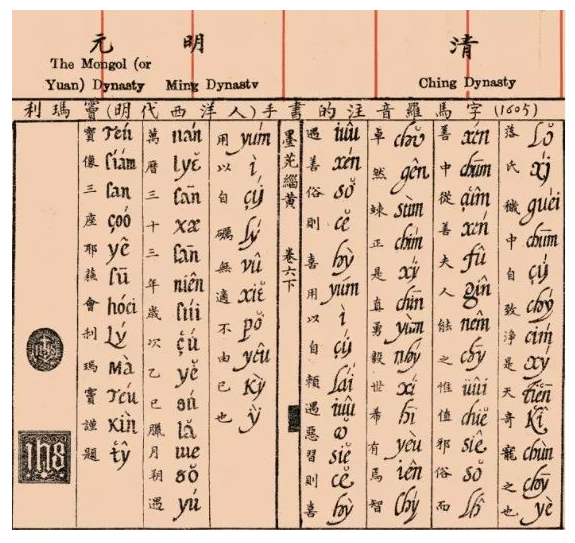 元 明 清
The Mongol (or
Yuan) Dynasty Ming Dynasty Ching Dynasty
利瑪竇(明代西洋人)手書的注音羅馬字(1605)
落 Lŏ 氏 xý 穢 guéi 中 chūm 自 çú 致 chý 淨 cím 是 xý 天 tiēn 奇 kî 寵 chùn 之 chȳ 也 yè
善 xén 中 chūm 從 çûm 善 xén 夫 fû 人 gîn 能 nêm 之 chȳ 惟 uûi 值 chiĕ 邪 siê 俗 sŏ 而 lh̑
卓 chŏ 然 gên 竦 sùm 正 chím 是 xý 真 chīn 勇 yùm 毅 nhý 世 xí 希 hī 有 yèu 焉 iên 智 chý
遇 iuû 善 xén 俗 sŏ 則 cĕ 喜 hỳ 用 yúm 以 ì 自 çú 賴 lái 遇 iuû 惡 ŏ 習 siĕ 則 cĕ 喜 hỳ
墨苑緇黄 卷六下
用 yúm 以 ì 自 çú 礪 lý 無 vû 適 xiĕ 不 pŏ 由 yêu 已 kỳ 也 ỳ
萬 nán 曆 lyĕ 三 ſān 十 xæ 三 ſān 年 niên 歲 ſúi 次 çú 乙 yĕ 巳 sú 臘 lă 月 iue 朔 sŏ 遇 yú
竇 Téu 像 ſiám 三 ſan 座 çoó 耶 yê 蘇 ſū 會 hóci 利 Lý 瑪 Mà 竇 Téu 謹 kìn 題 tŷ
IHS